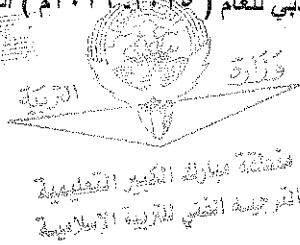 وزارة
التربية
منطقة مبارك الكبير التعليمية
التوجيه الفني للتربية الإسلامية